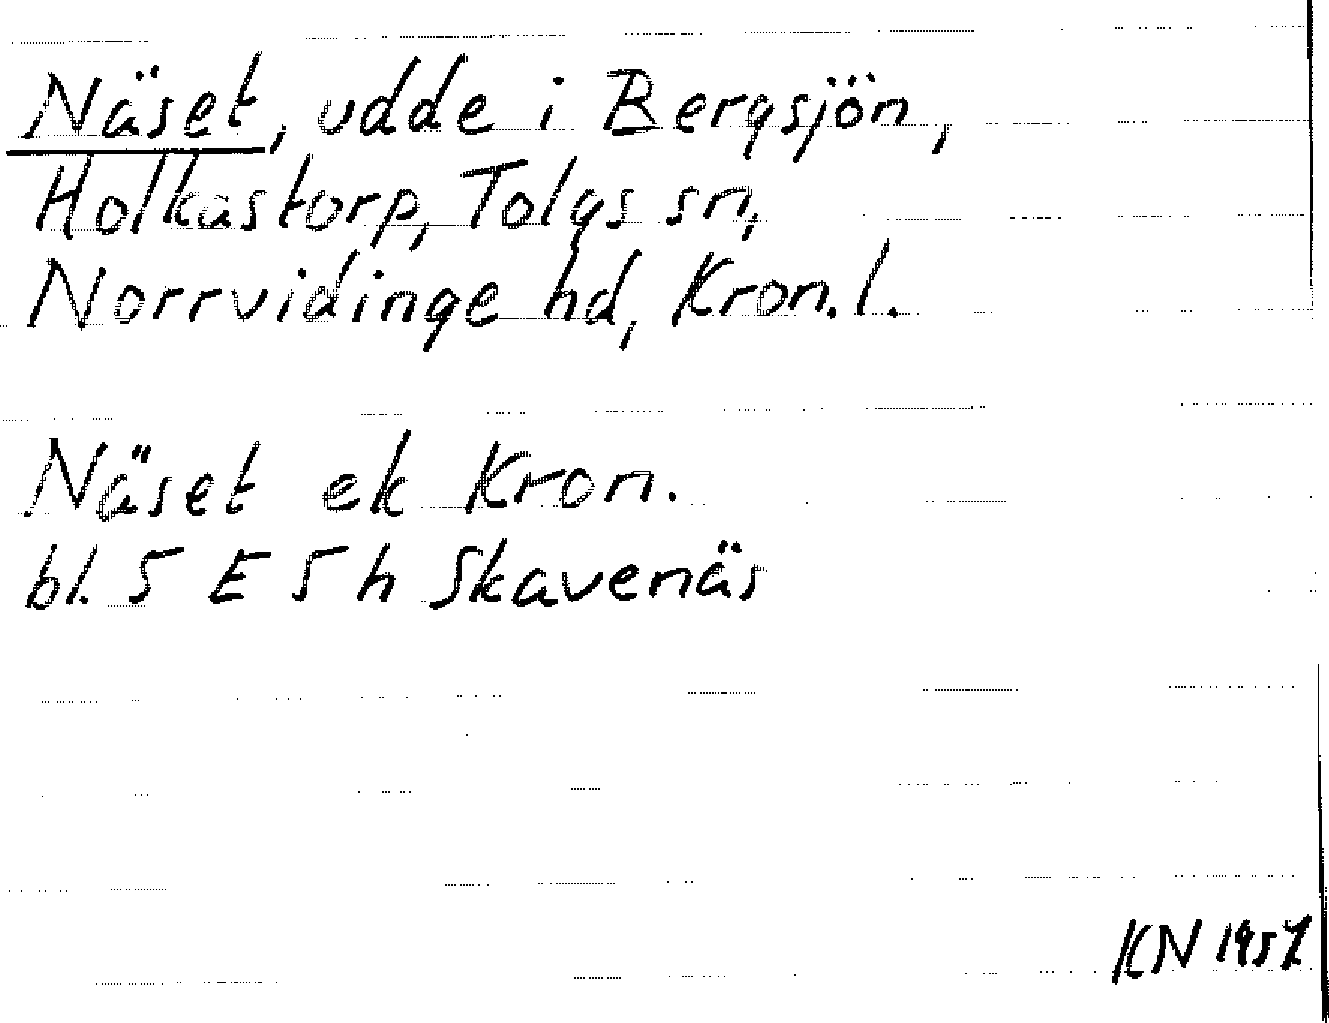 Näset, udde i Bergsjön,
Holkastorp, Tolgs sn,
Norrvidinge hd, Kron. l.
Näset ek Kron.
bl. 5 E 5 h Skavenäs
KN 1957